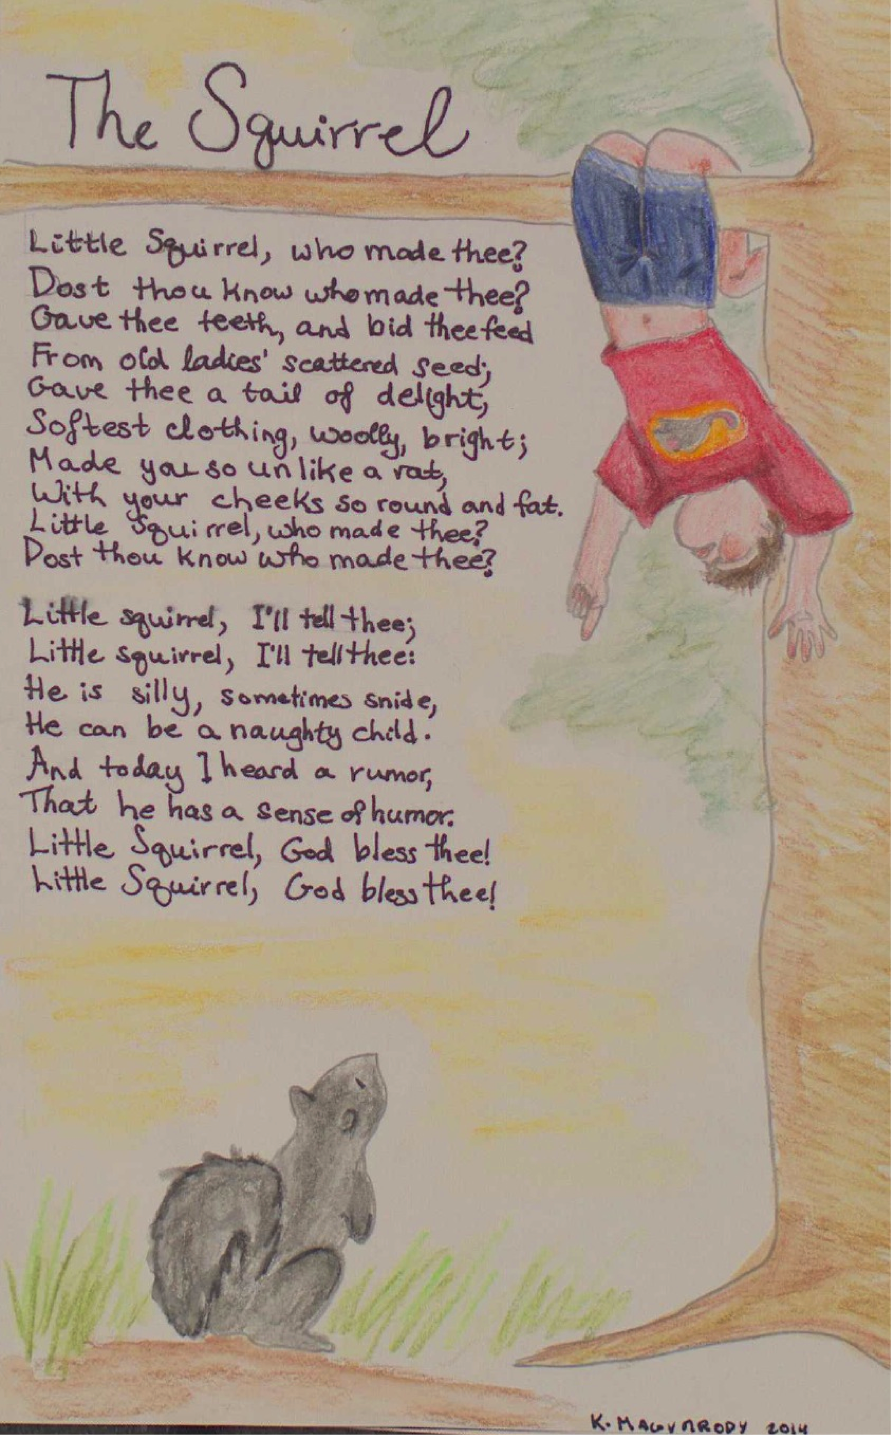 The Squirrel
Little Squirrel, who made thee?
Dost thou know who made thee?
Gave thee teeth, and bid thee feed
From old ladies' scattered seed;
Gave thee a tail of delight,
Softest clothing, woolly, bright;
Made you so unlike a rat,
With your cheeks so round and fat.
Little Squirrel, who made thee?
Dost thou know who made thee?
Little squirrel, I'll tell thee;
Little squirrel, I'll tell thee:
He is silly, sometimes snide,
He can be a naughty child.
And today I heard a rumor,
That he has a sense of humor.
Little Squirrel, God bless thee!
Little Squirrel, God bless thee!
K. MAGYNRODY 2014